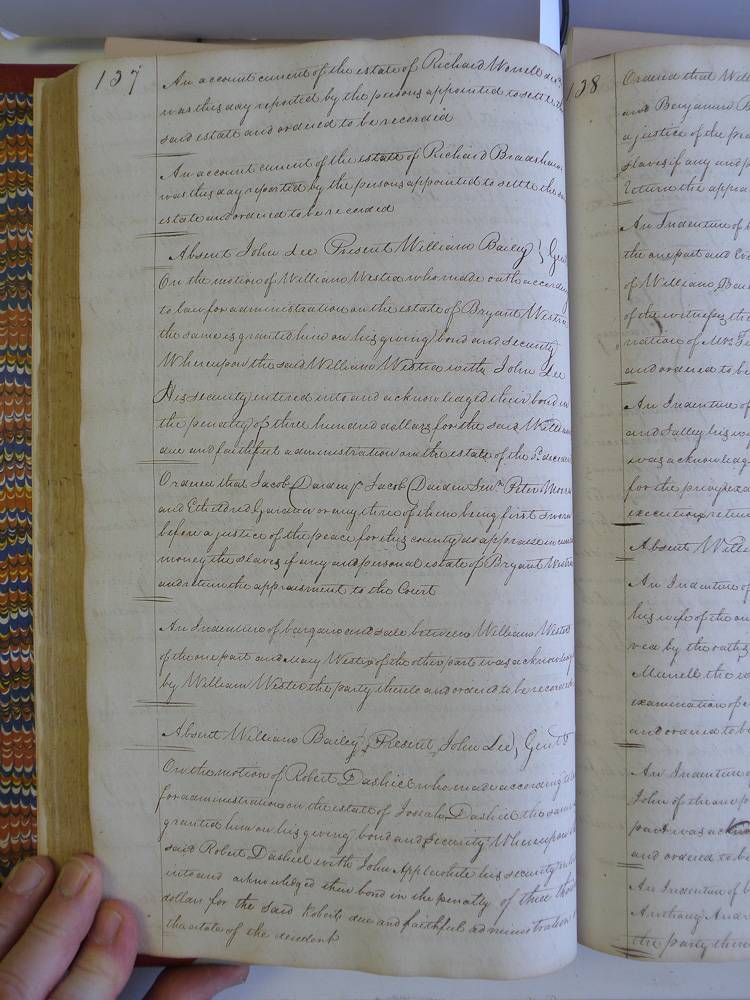 137
An account current of the estate of Richard Worrell decd
was this day reported by the persons appointed to settle the
said estate and ordered to be recorded
An account current of the estate of Richard Bradshaw
was this day reported by the persons appointed to settle the sd
estate and ordered to be recorded
Absent John Lee Present William Bailey } Gen
On the motion of William Westra who made oath according
to law for administration on the estate of Bryant Westra
the same is granted him on his giving bond and security
Whereupon the said William Westra with John Lee
His security entered into and acknowledged their bond in
the penalty of three hundred dollars for the said William
due and faithful administration on the estate of the sd deceden
Ordered that Jacob Darden Jr Jacob Darden Senr Peter
and Etheldred or any three of them being first sworn
before a justice of the peace for this county do appraise in
money the slaves if any and personal estate of Bryant Westra
and return the appraisment to the Court
An Indenture of bargain and sale between William Westra
of the one part and Mary Westra of the other part was acknowledg
by William Westra the party thereto and ordered to be recorded
Absent William Bailey, Present John Lee, Gent
On the motion of Robert Dashiel who made according to
for administration on the estate of Josiah Dashiel the same
granted him on his giving bond and security Whereupon
said Robert Dashiel with John Applewhite his security
into and acknowledged their bond in the penalty of three
dollars for the said Roberts due and faithful administration
the estate of the decedent
138
Ordered that Will
and Benjamin B
a justice of the pea
slaves if any and p
return the appra
An Indenture of b
the one part and
of William Bai
of the witnesses the
nation of
and ordered to be
An Indenture of
and Salley his w
was acknowledg
for the privy exa
execution return
Absent Willi
An Indenture of
his wife of the on
ved by the oaths
Murrell the
examination of
and ordered to b
An Indenture
John of the one p
part was ackn
and ordered to be
An Indenture of b
Anthony Andr
the party there